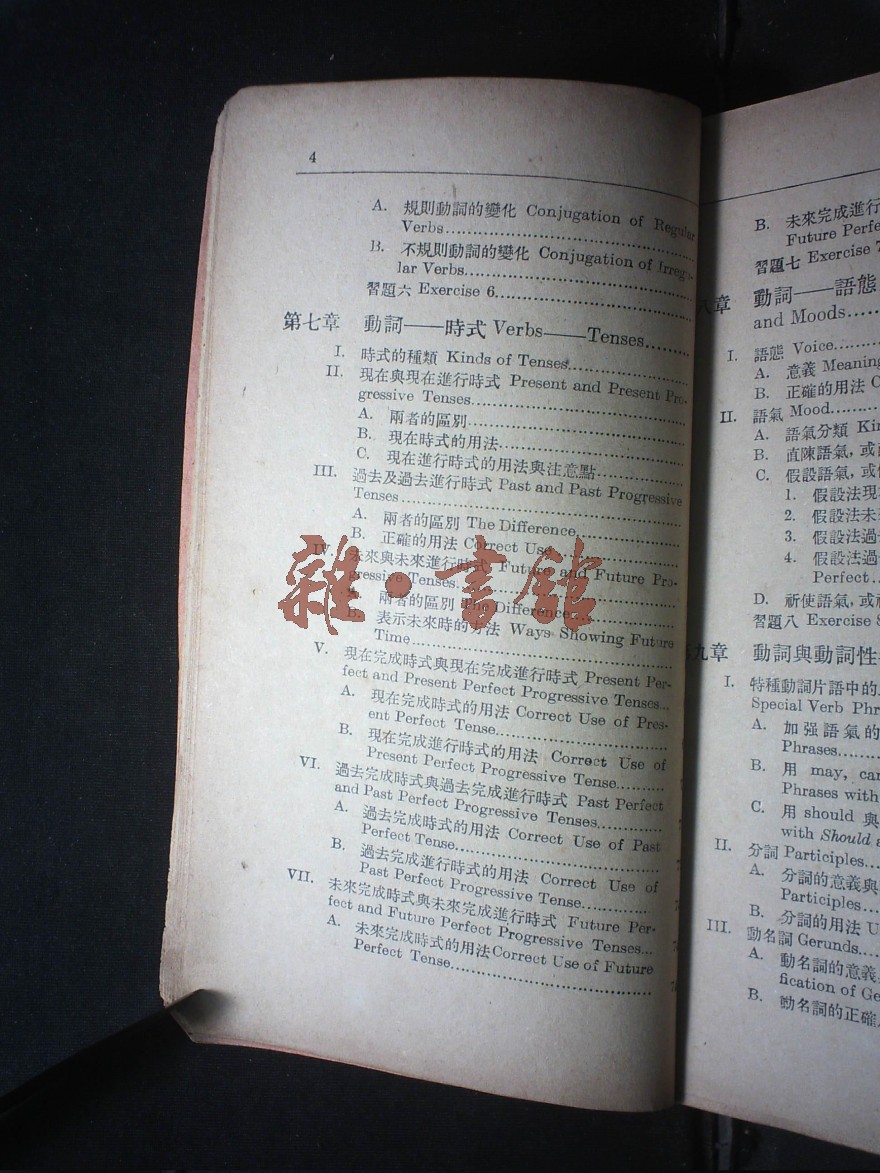 4
A. 規則動詞的變化 Conjugation of Regular
Verbs
B. 不規則動詞的變化 Conjugation of Irregu-
lar Verbs
習題六 Exercise 6
第七章 動詞——時式 Verbs——Tenses
I. 時式的種類 Kinds of Tenses
II. 現在與現在進行時式 Present and Present Pro-
gressive Tenses
A. 兩者的區別
B. 現在時式的用法
C. 現在進行時式的用法與注意點
III. 過去及過去進行時式 Past and Past Progressive
Tenses
A. 兩者的區別 The Difference
B. 正確的用法 Correct Use
IV. 未來與未來進行時式 Future and Future Pro-
gressive Tenses
兩者的區別 The Difference
B. 表示未來時的方法 Ways Showing Future
Time
V. 現在完成時式與現在完成進行時式 Present Per-
fect and Present Perfect Progressive Tenses
A. 現在完成時式的用法 Correct Use of Pres-
ent Perfect Tense
B. 現在完成進行時式的用法 Correct Use of
Present Perfect Progressive Tense
VI. 過去完成時式與過去完成進行時式 Past Perfect
and Past Perfect Progressive Tenses
A. 過去完成時式的用法 Correct Use of Past
Perfect Tense
B. 過去完成進行時式的用法 Correct Use of
Past Perfect Progressive Tense
VII. 未來完成時式與未來完成進行時式 Future Per-
fect and Future Perfect Progressive Tenses
A. 未來完成時式的用法 Correct Use of Future
Perfect Tense
雜·書館
B. 未來完成進行
Future Perfe
習題七 Exercise 7
八章 動詞——語態
and Moods
I. 語態 Voice
A. 意義 Meaning
B. 正確的用法 C
II. 語氣 Mood
A. 語氣分類 Kin
B. 直陳語氣,或
C. 假設語氣,或
1. 假設法現
2. 假設法未
3. 假設法過
4. 假設法過
Perfect
D. 祈使語氣,或
習題八 Exercise 8
九章 動詞與動詞性
I. 特種動詞片語中的
Special Verb Phr
A. 加强語氣的
Phrases
B. 用 may, can
Phrases with
C. 用 should 與
with Should a
II. 分詞 Participles
A. 分詞的意義與
Participles
B. 分詞的用法 U
III. 動名詞 Gerunds
A. 動名詞的意義
fication of Ge
B. 動名詞的正確